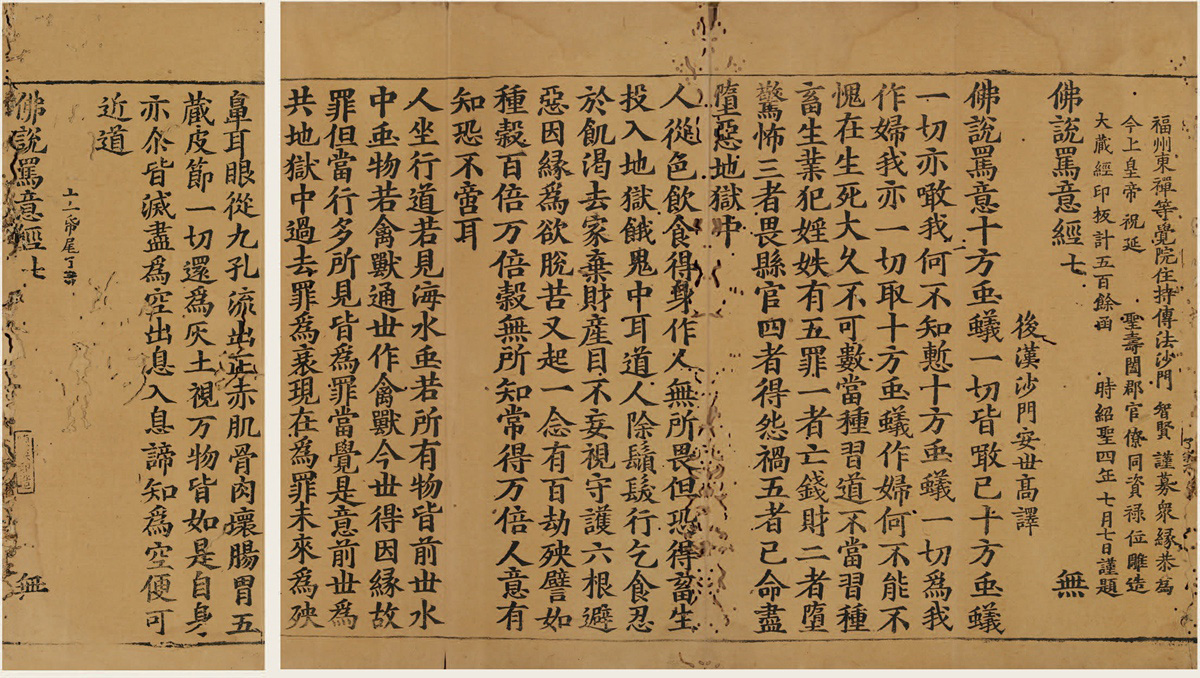 福州東禪等覺院住持傳法沙門 智賢 謹募衆緣恭爲
今上皇帝 祝延 聖壽闔郡官僚同資祿位雕造
大藏經印板計五百餘函 時紹聖四年七月七日謹題
佛說罵意經 七 無
後漢沙門安世高譯
佛說罵意十方虫蟻一切皆噉已十方虫蟻
一切亦噉我何不知慙十方虫蟻一切爲我
作婦我亦一切取十方虫蟻作婦何不能不
愧在生死大久不可數當種習道不當習種
畜生業犯婬妷有五罪一者亡錢財二者墮
驚怖三者畏縣官四者得怨禍五者已命盡
墮惡地獄中
人從色飲食得身作人無所畏但恐得畜生
投入地獄餓鬼中耳道人除鬚髮行乞食忍
於飢渴去家棄財産目不妄視守護六根避
惡因緣爲欲脫苦又起一念有百劫殃譬如
種穀百倍万倍穀無所知常得万倍人意有
知恐不啻耳
人坐行道若見海水虫若所有物皆前世水
中虫物若禽獸通世作禽獸今世得因緣故
罪但當行多所見皆爲罪當覺是意前世爲
共地獄中過去罪爲衰現在爲罪未來爲殃
鼻耳眼從九孔流出正赤肌骨肉壞腸胃五
藏皮節一切還爲灰土視万物皆如是自身
亦尒皆滅盡爲空出息入息諦知爲空便可
近道
佛說罵意經 七 無